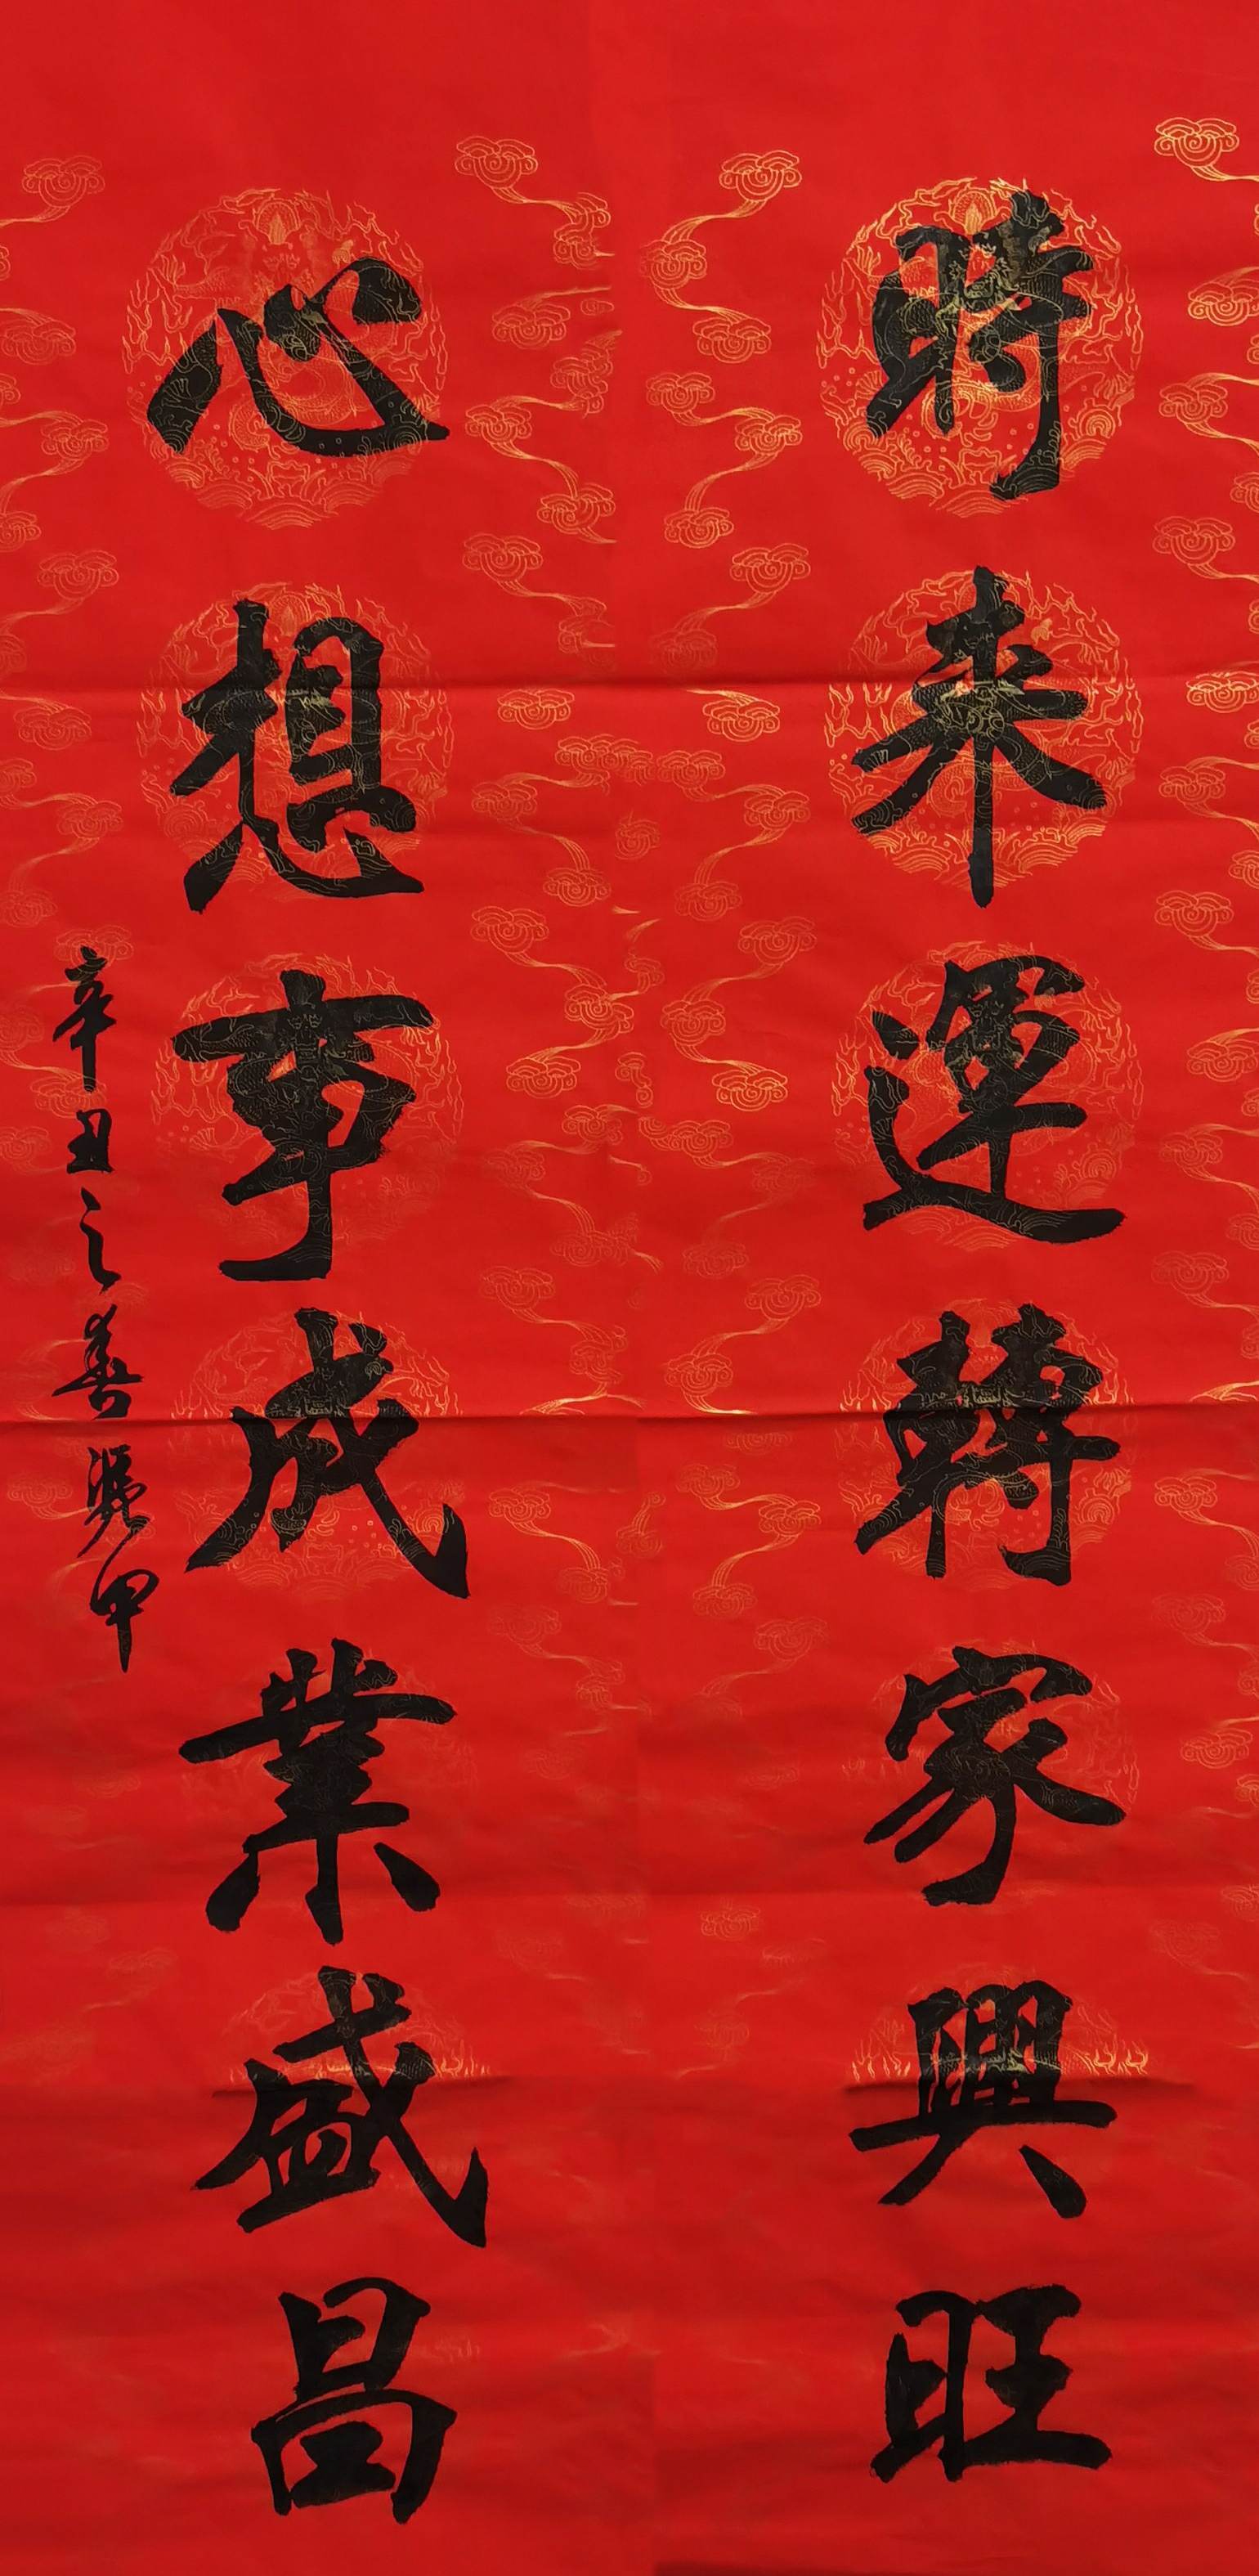 時来運轉家興旺
心想事成業盛昌
辛丑之春
甲